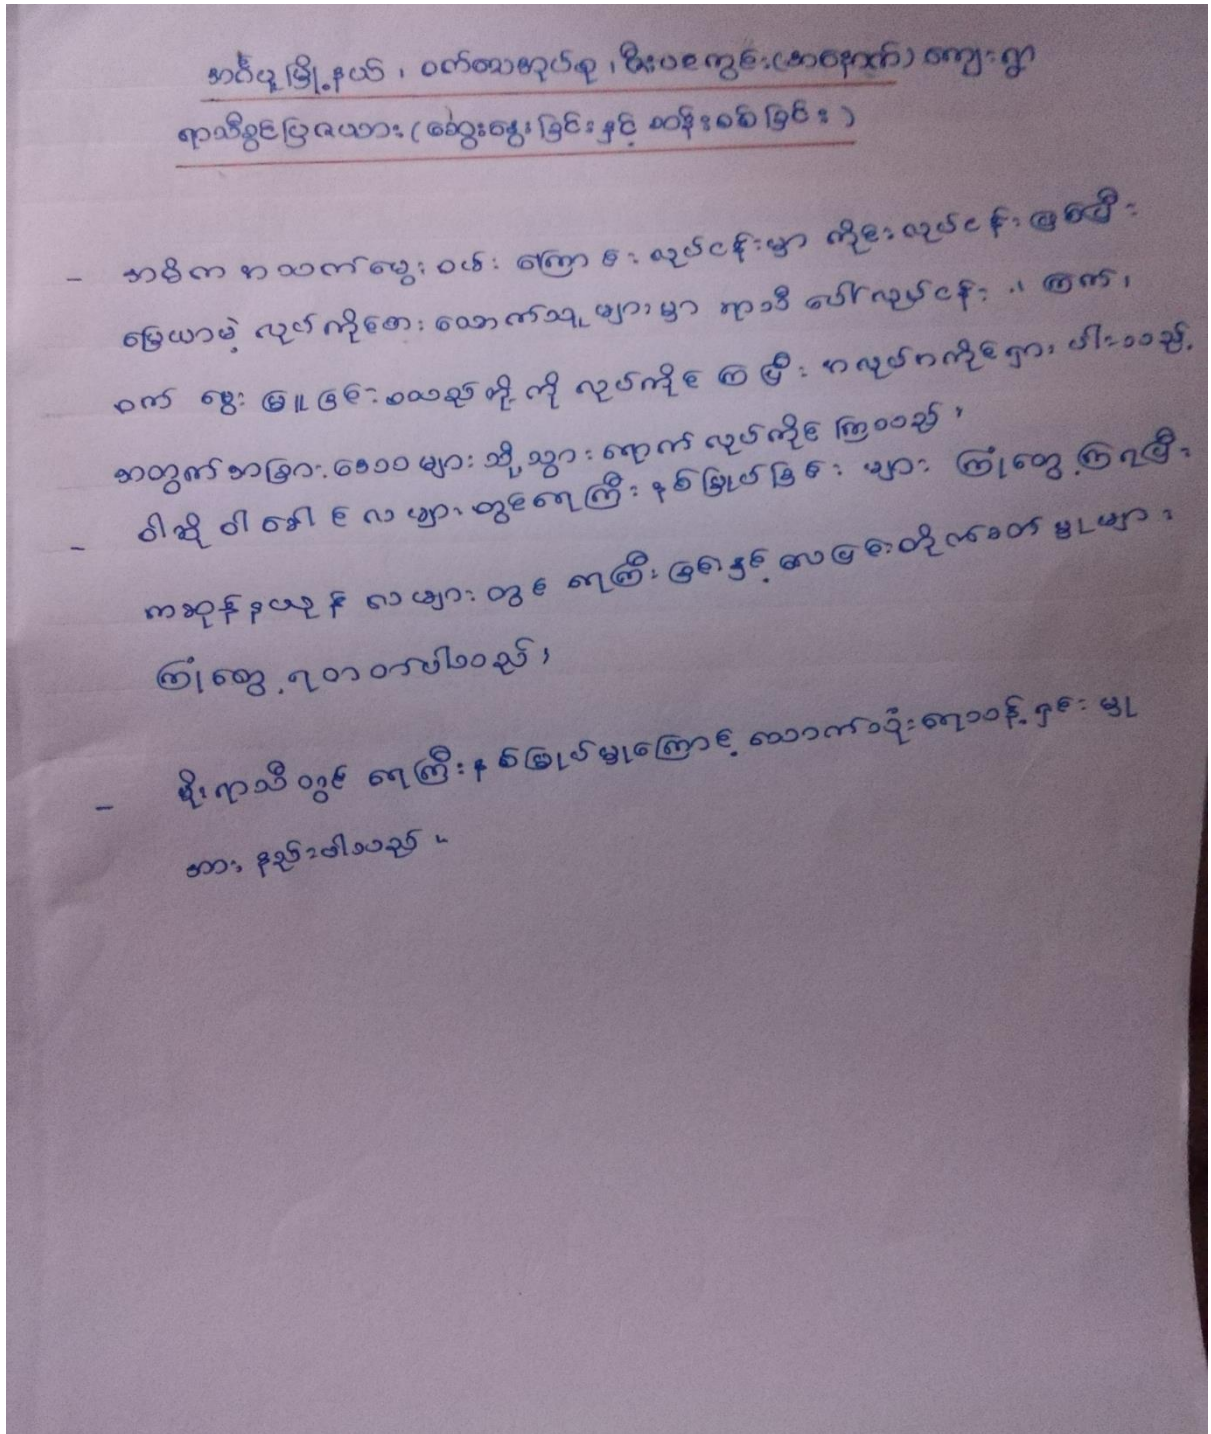 အင်္ဂပူမြို့နယ်၊ ဝက်သေအုပ်စု၊ မီးပကွင်း(အနောက်)ကျေးရွာ
ရာသီခွင်ပြဇယား(ဆွေးနွေးခြင်းနှင့် ဆန်းစစ်ခြင်း)
- အဓိကအသက်မွေးဝမ်းကြောင်းလုပ်ငန်းမှာ ကိုင်းလုပ်ငန်းဖြစ်ပြီး
မြေယာမဲ့ လုပ်ကိုင်စားသောက်သူများမှာ ရာသီပေါ်လုပ်ငန်း ၊ ကြက်၊
ဝက် မွေးမြူခြင်းစသည်တို့ကို လုပ်ကိုင်ကြပြီး အလုပ်အကိုင်ရှားပါးသည့်
အတွက်အခြားဒေသများသို့သွားရောက်လုပ်ကိုင်ကြသည်၊
- ဝါဆို ဝါခေါင်လများတွင်ရေကြီးနစ်မြုပ်ခြင်းများ ကြုံတွေ့ကြရပြီး
ကဆုန်နယုန်လများတွင် ရေကြီးခြင်းနှင့် လေပြင်းတိုက်ခတ်မှုများ
ကြုံတွေ့ရတတ်ပါသည်၊
- မိုးရာသီတွင် ရေကြီးနစ်မြုပ်မှုကြောင့် သောက်သုံးရေသန့်ရှင်းမှု
အား နည်းပါသည်။